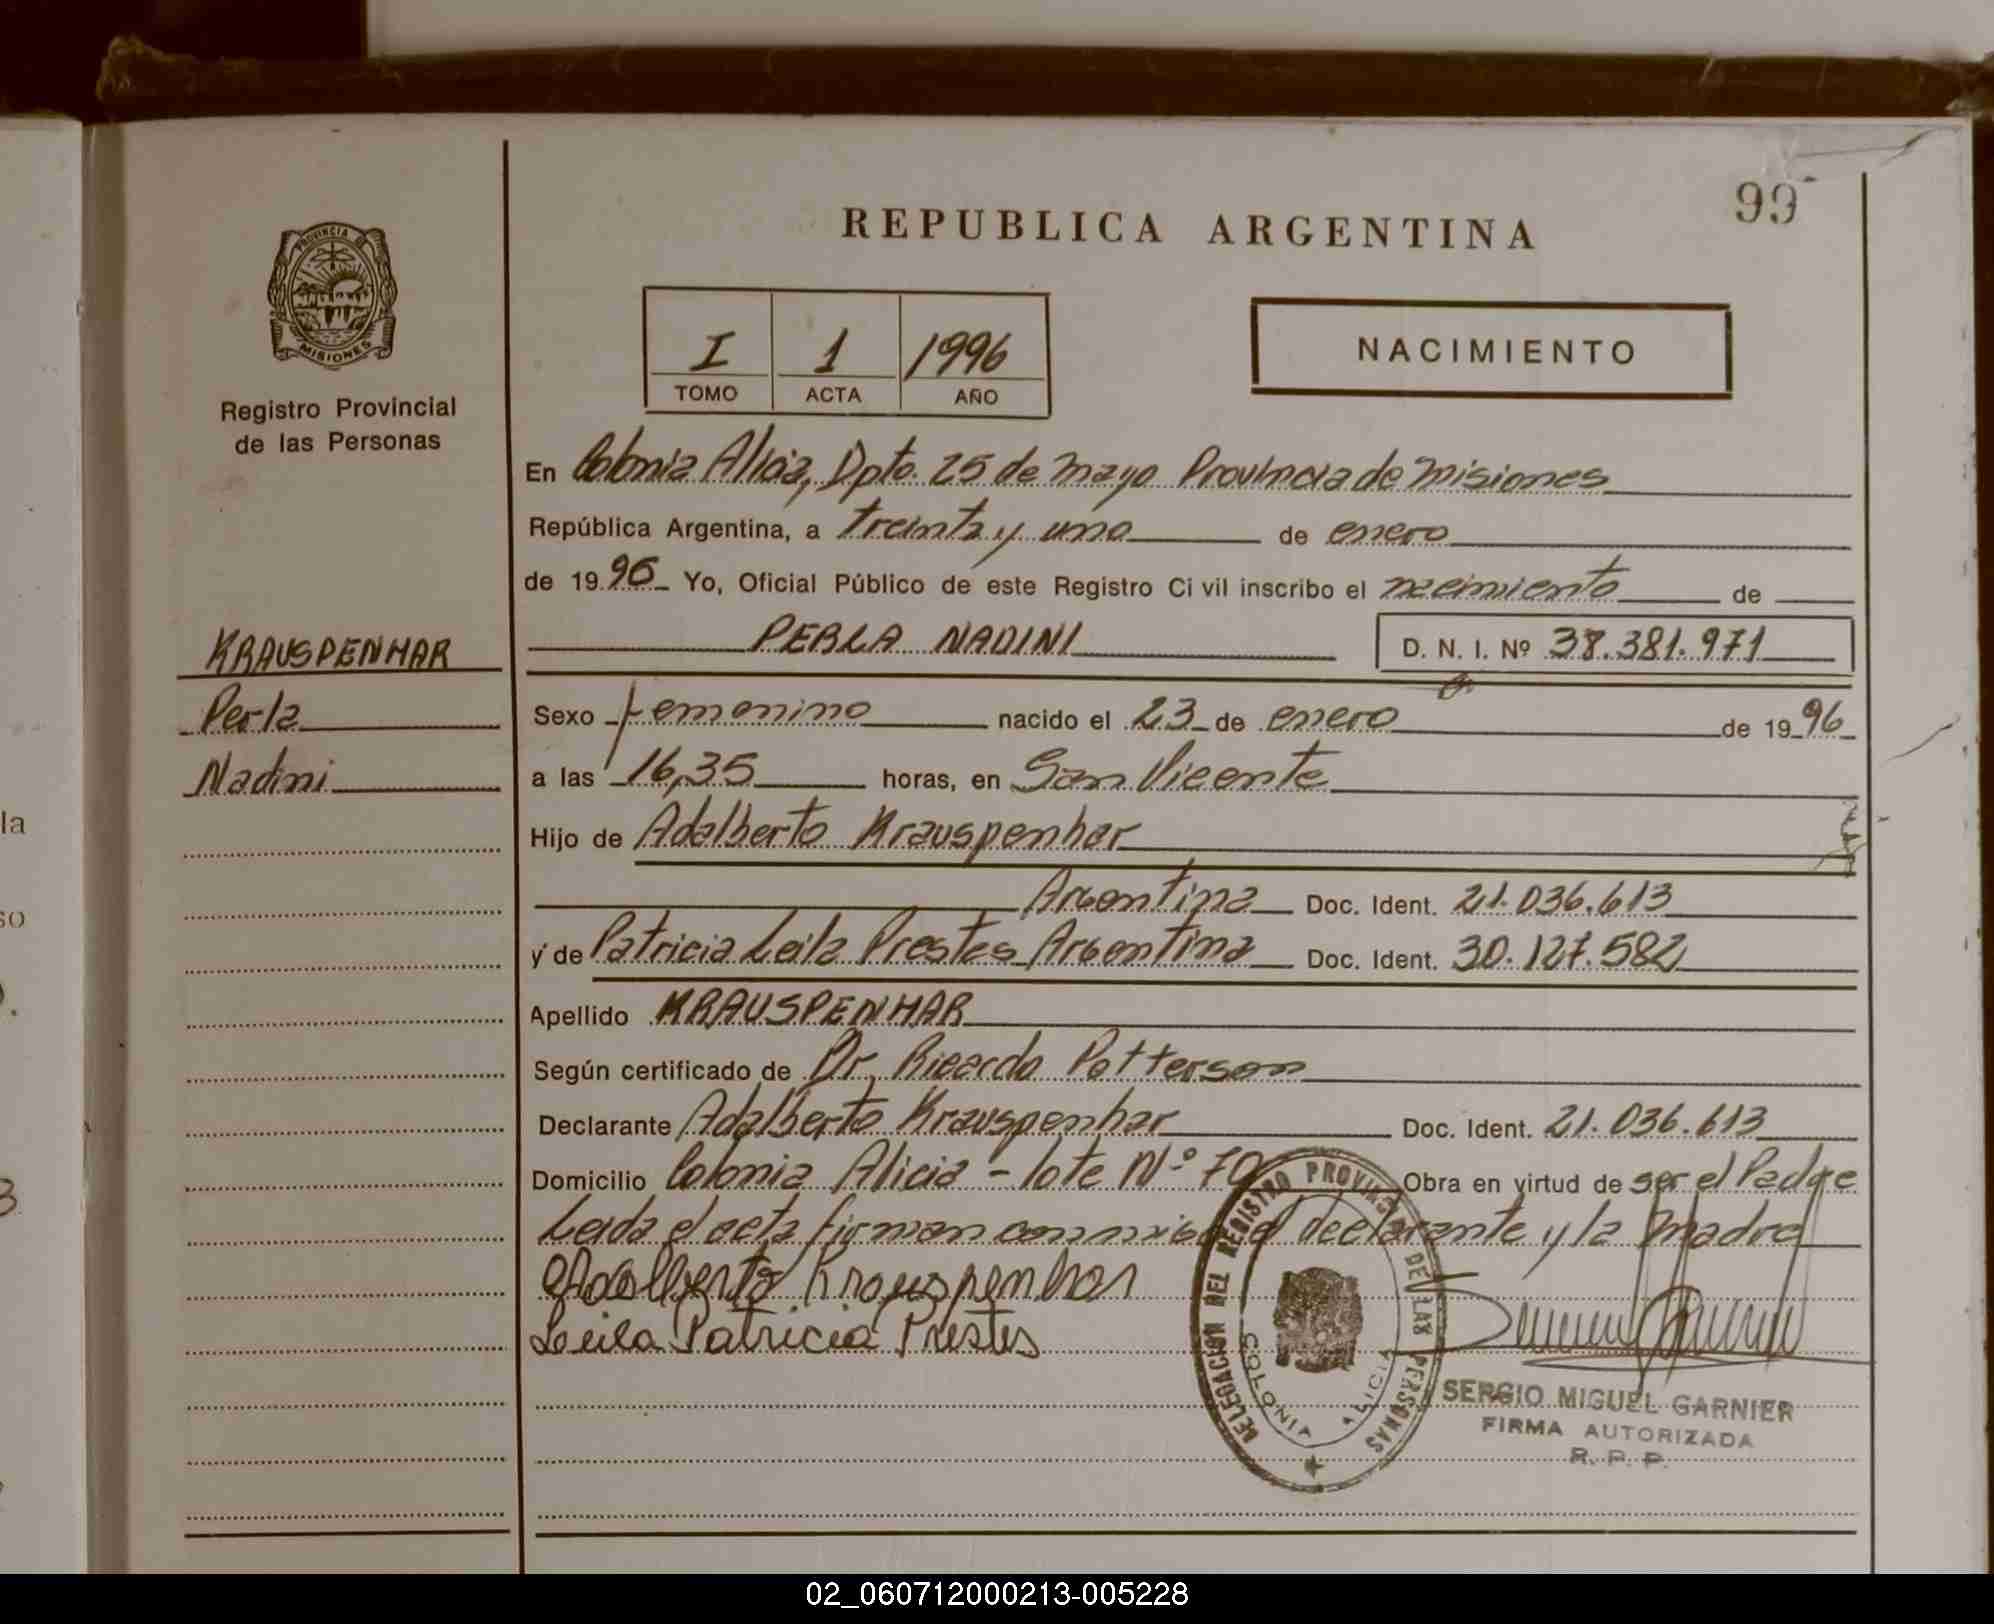 99
REPUBLICA ARGENTINA
PROVINCIA DE
MISIONES
Registro Provincial
de las Personas
I 1 1996
TOMO ACTA AÑO
NACIMIENTO
En Colonia Alicia, Dpto. 25 de Mayo Provincia de Misiones
República Argentina, a treinta y uno de enero
de 1996 Yo, Oficial Público de este Registro Civil inscribo el nacimiento de
PERLA NADINI D. N. I. Nº 38.381.971
KRAUSPENHAR
Perla
Nadini
Sexo femenino nacido el 23 de enero de 1996
a las 16,35 horas, en San Vicente
Hijo de Adalberto Krauspenhar
Argentina Doc. Ident. 21.036.613
y de Patricia Leila Prestes Argentina Doc. Ident. 30.127.582
Apellido KRAUSPENHAR
Según certificado de Dr. Ricardo Potterson
Declarante Adalberto Krauspenhar Doc. Ident. 21.036.613
Domicilio Colonia Alicia - lote Nº 70 Obra en virtud de ser el Padre
Leida el acta firman conmigo el declarante y la Madre
Adalberto Krauspenhar
Leila Patricia Prestes
DELEGACION DEL REGISTRO PROVINCIAL DE LAS PERSONAS
COLONIA ALICIA
SERGIO MIGUEL GARNIER
FIRMA AUTORIZADA
R. P. P.
la
so
02_060712000213-005228